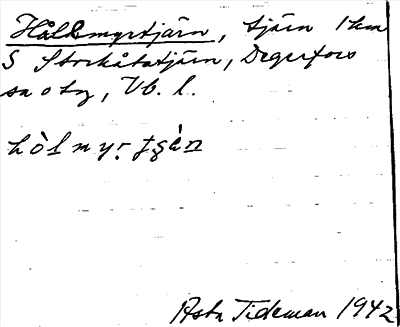 Hålkmyrtjärn, tjärn 1 km
S Storkåtatjärn, Degerfors
sn o tg, Vb. l.
hòlmyr̥tʂèn
Asta Tideman 1942